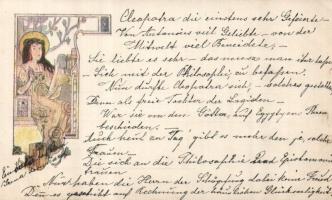 Cleopatra die einstens sehr Gefeierte –
Von Antonius viel Geliebte – von der
Mitwelt viel Beneidete, –
Sie liebte es sehr – das muss man
Sich mit der Philosophie, zu befassen.
Nun durfte Cleopatra sich, – solches
Denn als freie Tochter der Lagiden –
War sie von den Göttern, auf Egyptens Thron
Beschieden. –
Auch heut zu Tag' gibt es mehr den je, solche
Frauen –
Die sich an die Philosophie
trauen
Nur haben die Herrn der Schöpfung dabei keine Freud
Denn es geschieht auf Rechnung der häuslichen Glückseligkeit